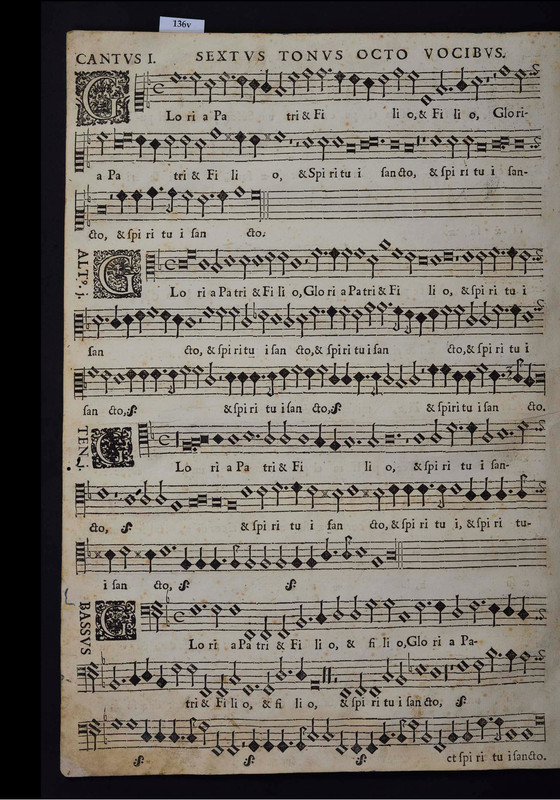 136v
CANTVS I. SEXTVS TONVS OCTO VOCIBVS.
GLo ri a Pa tri & Fi li o, & Fi li o, Glori-
a Pa tri & Fi li o, & Spi ri tu i ſancto, & ſpi ri tu i ſan-
cto, & ſpi ri tu i ſan cto.
ALTº. j.
GLo ri a Pa tri & Fi li o, Glo ri a Pa tri & Fi li o, & ſpi ri tu i
ſan cto, & ſpi ri tu i ſan cto, & ſpi ri tu i ſan cto, & ſpi ri tu i
ſan cto, ij. & ſpi ri tu i ſan cto, ij. & ſpi ri tu i ſan cto.
GLo ri a Pa tri & Fi li o, & ſpi ri tu i ſan-
cto, ij. & ſpi ri tu i ſan cto, & ſpi ri tu i, & ſpi ri tu-
i ſan cto, ij. ij.
BASSVS
GLo ri a Pa tri & Fi li o, & fi li o, Glo ri a Pa-
tri & Fi li o, & fi li o, & ſpi ri tu i ſan cto, ij.
ij. ij. ij. et ſpi ri tu i ſancto.